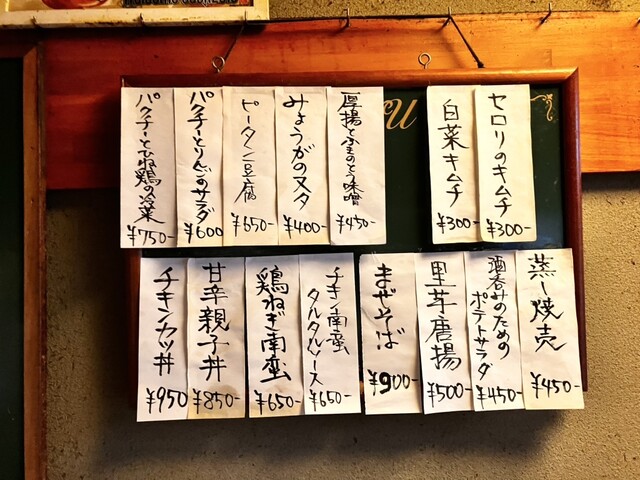 セロリのキムチ
¥300-
白菜キムチ
¥300-
厚揚とふきのとう味噌
¥450-
みょうがのヌタ
¥400-
ピータン豆腐
¥650-
パクチーとりんごのサラダ
¥600
パクチーとひね鶏の冷菜
¥750-
蒸し焼売
¥450-
酒呑みのための
ポテトサラダ
¥450-
里芋唐揚
¥500-
まぜそば
¥900-
チキン南蛮
タルタルソース
¥650-
鶏ねぎ南蛮
¥650-
甘辛親子丼
¥850-
チキンカツ丼
¥950